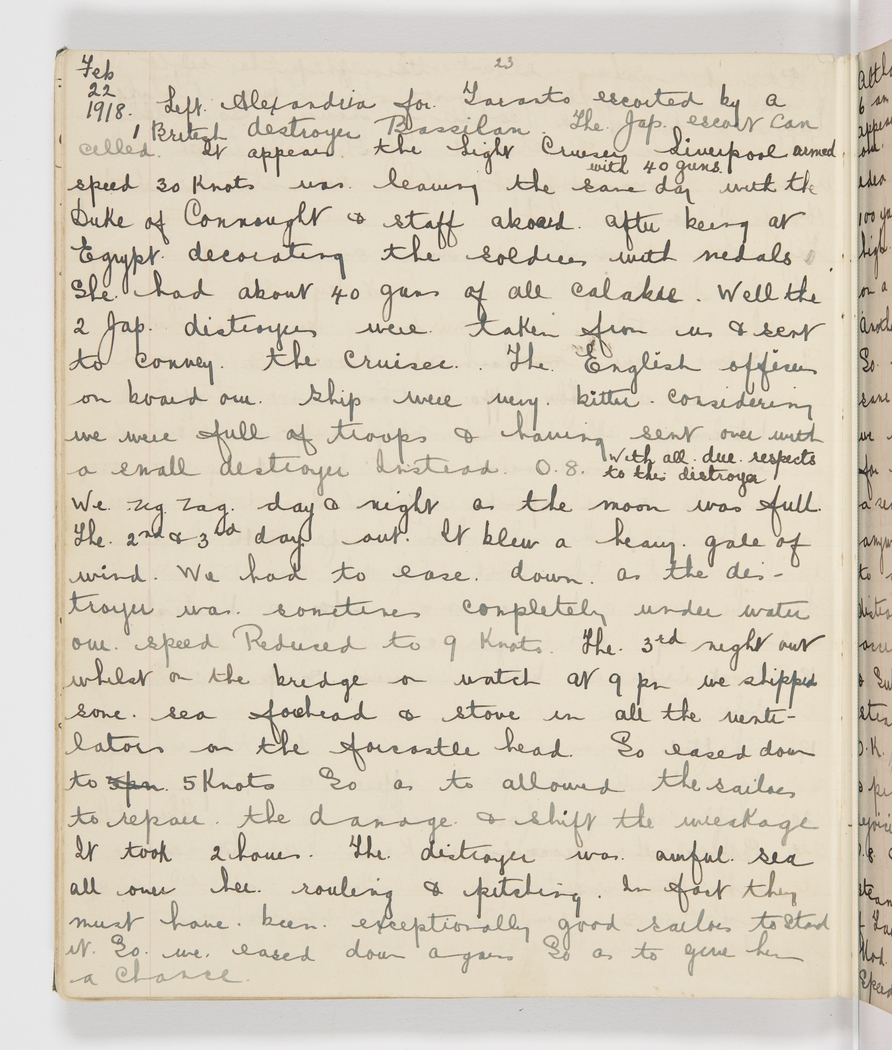 23
Feb
22
1918. Left Alexandria for Taranto escorted by a
1 British destroyer Bassilan. The Jap. escort can
celled. It appears the Light Cruiser Liverpool armed
with 40 guns.
speed 30 Knots was leaving the same day with the
Duke of Connought & staff aboard. after being at
Egypt. decorating the soldiers with medals.
She had about 40 guns of all calabre. Well the
2 Jap. distroyers were taken from us & sent
to convey. the Cruiser. The English officers
on board our ship were very bitter. considering
we were full of troops & having sent over with
a small destroyer Instead. O.8. with all due respects
to this distroyer
We zig zag. day & night as the moon was full.
The 2nd & 3rd day out. It blew a heavy gale of
wind. We had to ease. down. as the des-
troyer was. sometimes completely under water
our speed Reduced to 9 Knots. The. 3rd night out
whilst on the bridge on watch at 9 pm we shipped
some. sea forehead & stove in all the venti-
lators on the forcastle head. So eased down
to 5pm. 5 Knots So as to allowed the sailors
to repair. the damage. & shift the wreakage
It took 2 hours. The distroyer was awful. sea
all over her. rouling & pitching. In fact they
must have been exceptionally good sailors to stand
it. So we. eased down again So as to give her
a chance.